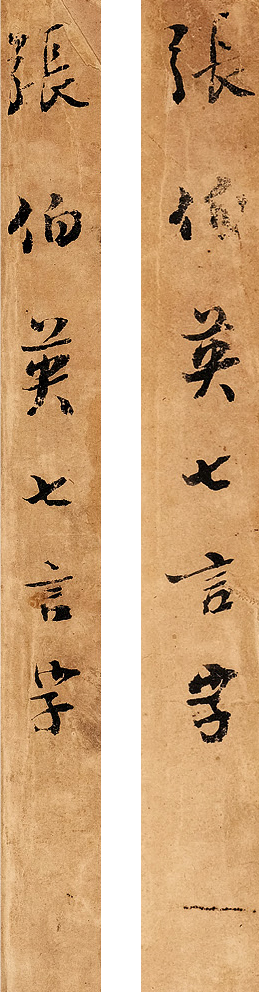 張伯英七言字
張伯英七言字